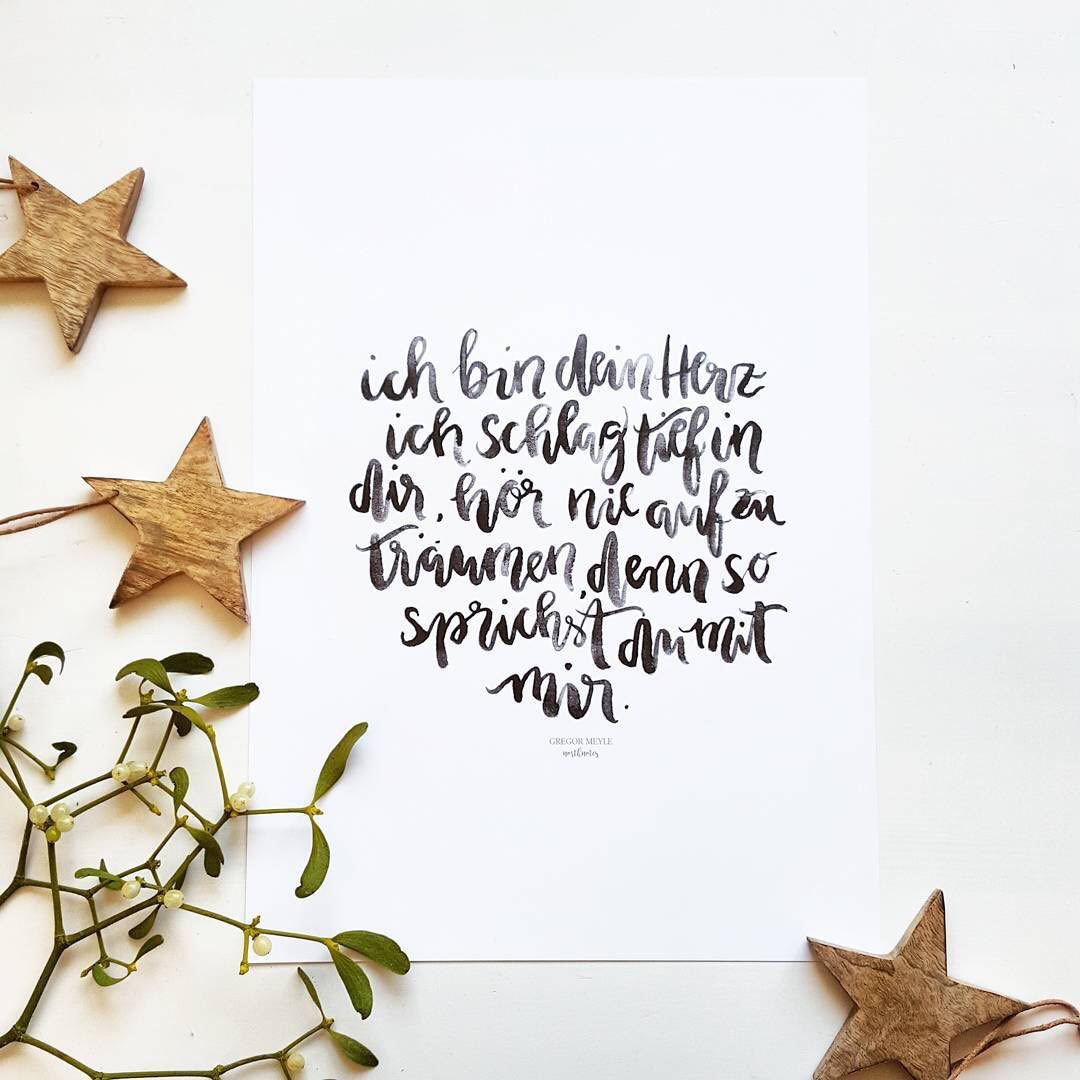 ich bin dein Herz
ich schlag tief in
dir, hör nie auf zu
träumen, denn so
sprichst du mit
mir.
GREGOR MEYLE
northnotes